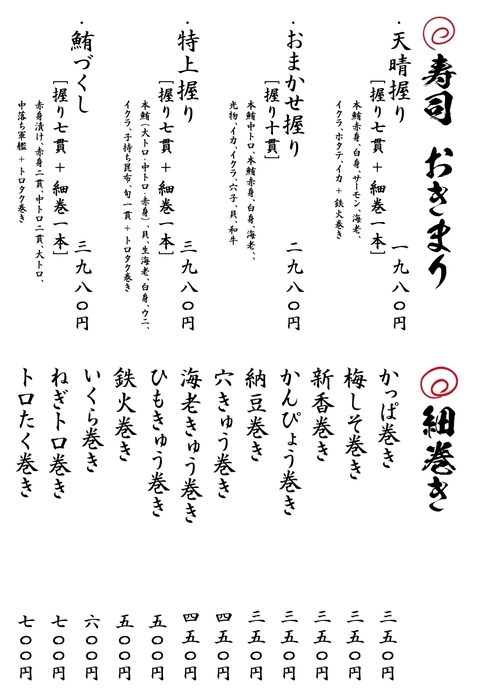 寿司 おきまり
・天晴握り
[握り七貫 + 細巻一本] 一九八〇円
本鮪赤身、白身、サーモン、海老、
イクラ、ホタテ、イカ + 鉄火巻き
・おまかせ握り
[握り十貫] 二九八〇円
本鮪中トロ、本鮪赤身、白身、海老、、
光物、イカ、イクラ、穴子、貝、和牛
・特上握り
[握り七貫 + 細巻一本] 三九八〇円
本鮪(大トロ・中トロ・赤身)、貝、生海老、白身、ウニ、
イクラ、子持ち昆布、旬一貫 + トロタク巻き
・鮪づくし
[握り七貫 + 細巻一本] 三九八〇円
赤身漬け、赤身二貫、中トロ二貫、大トロ、
中落ち軍艦 + トロタク巻き
細巻き
かっぱ巻き 三五〇円
梅しそ巻き 三五〇円
新香巻き 三五〇円
かんぴょう巻き 三五〇円
納豆巻き 三五〇円
穴きゅう巻き 四五〇円
海老きゅう巻き 四五〇円
ひもきゅう巻き 五〇〇円
鉄火巻き 五〇〇円
いくら巻き 六〇〇円
ねぎトロ巻き 七〇〇円
トロたく巻き 七〇〇円